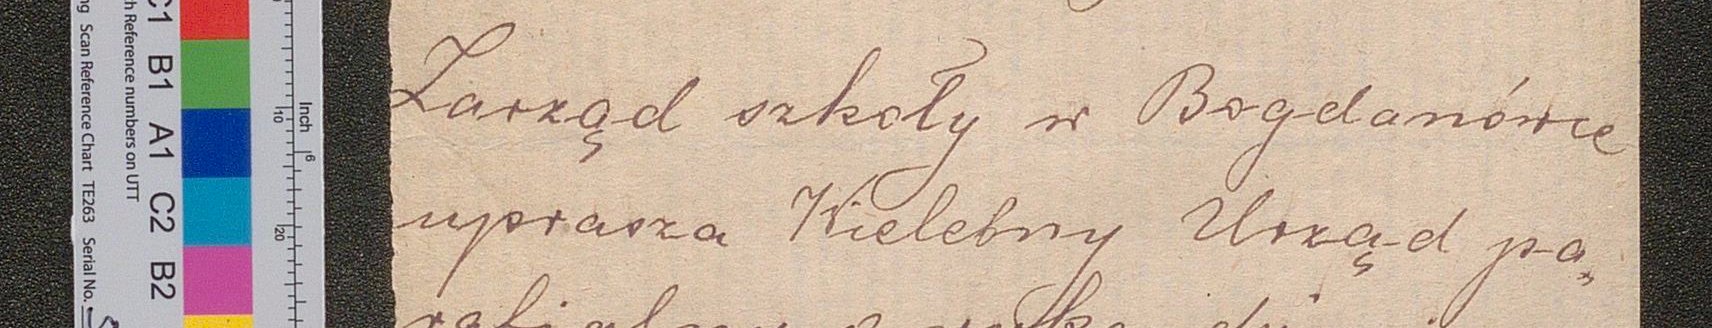 Zarząd szkoły w Bogdanówce
uprasza Wielebny Urząd pa„
C1 B1 A1 C2 B2
Reference numbers on UTT
Scan Reference Chart TE263 Serial No.
Inch
10
20
6